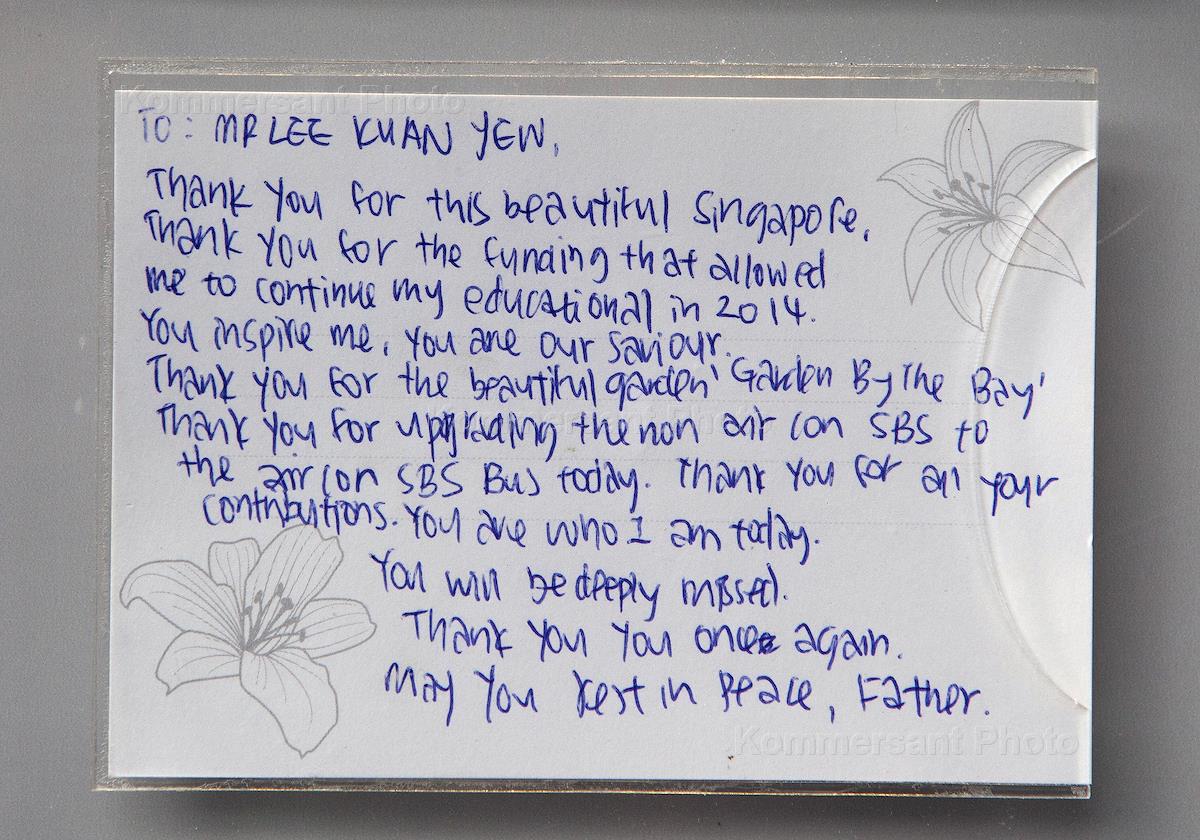 Kommersant Photo
TO: MR LEE KUAN YEW,
Thank you for this beautiful Singapore,
Thank you for the funding that allowed
me to continue my educational in 2014.
You inspire me, you are our saviour.
Thank you for the beautiful garden 'Garden By The Bay'
Thank you for upgrading the non air con SBS to
the air con SBS Bus today. Thank you for all your
contributions. You are who I am today.
You will be deeply missed.
Thank you you once again.
May you rest in peace, Father.
Kommersant Photo